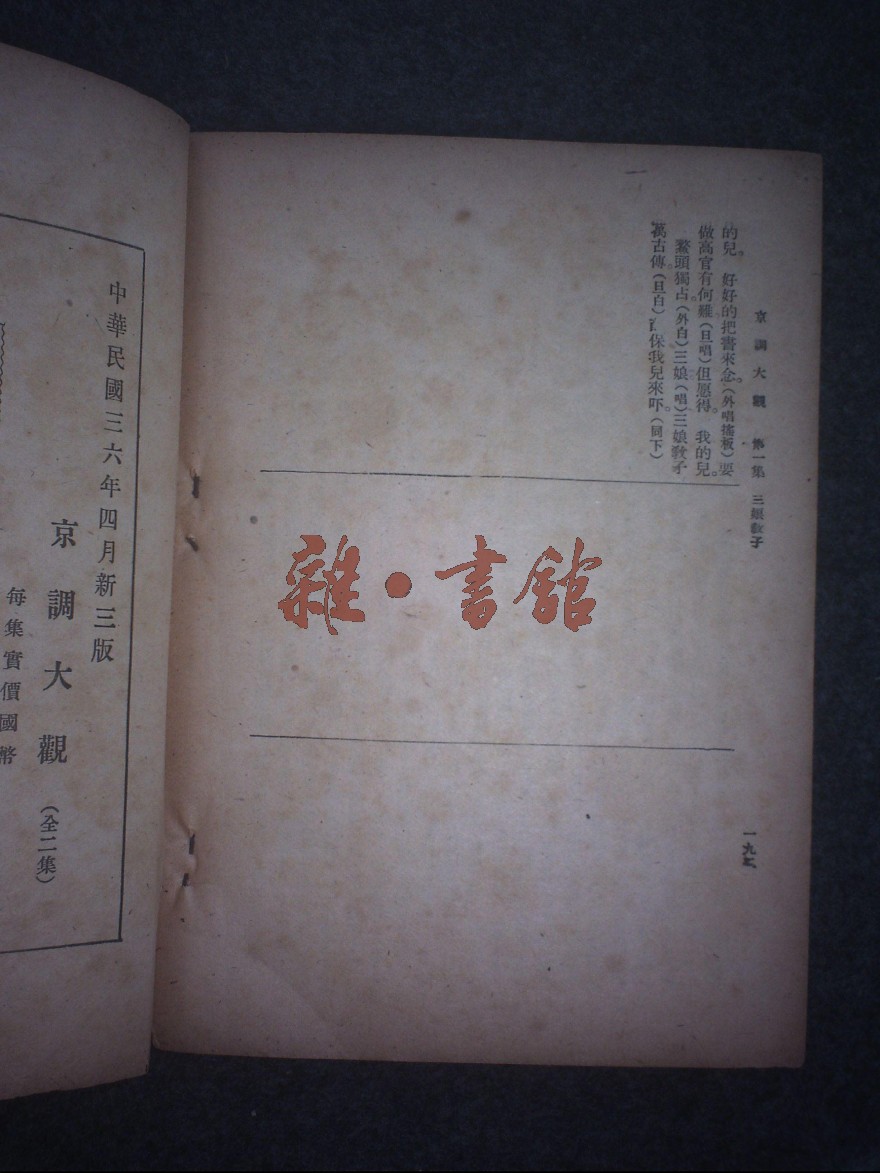 京調大觀　第一集　三娘教子
的兒。好好的把書來念。(外唱搖板)要
做高官有何難(旦唱)但愿得。我的兒。
鰲頭獨占。(外白)三娘(唱)三娘敎子
萬古傳(旦白)保我兒來吓。(同下)
雜·書館
中華民國三六年四月新三版
京調大觀(全二集)
每集實價國幣